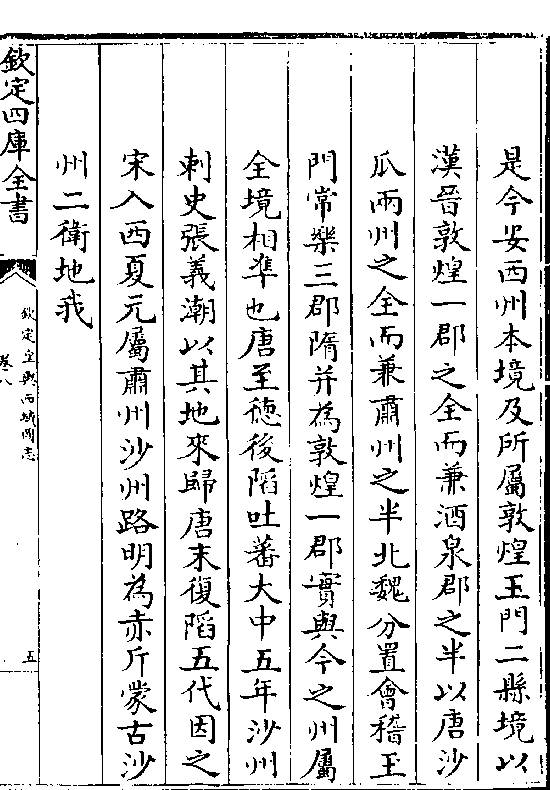 是今安西州本境及所屬敦煌玉門二縣境以
漢晉敦煌一郡之全而兼酒泉郡之半以唐沙
瓜兩州之全而兼肅州之半北魏分置會稽玉
門常樂三郡隋并為敦煌一郡實與今之州屬
全境相準也唐至徳後陷吐蕃大中五年沙州
刺史張義潮以其地來歸唐末復陷五代因之
宋入西夏元屬肅州沙州路明為赤斤蒙古沙
州二衛地我
欽定四庫全書
欽定皇輿西域圖志
卷八
五